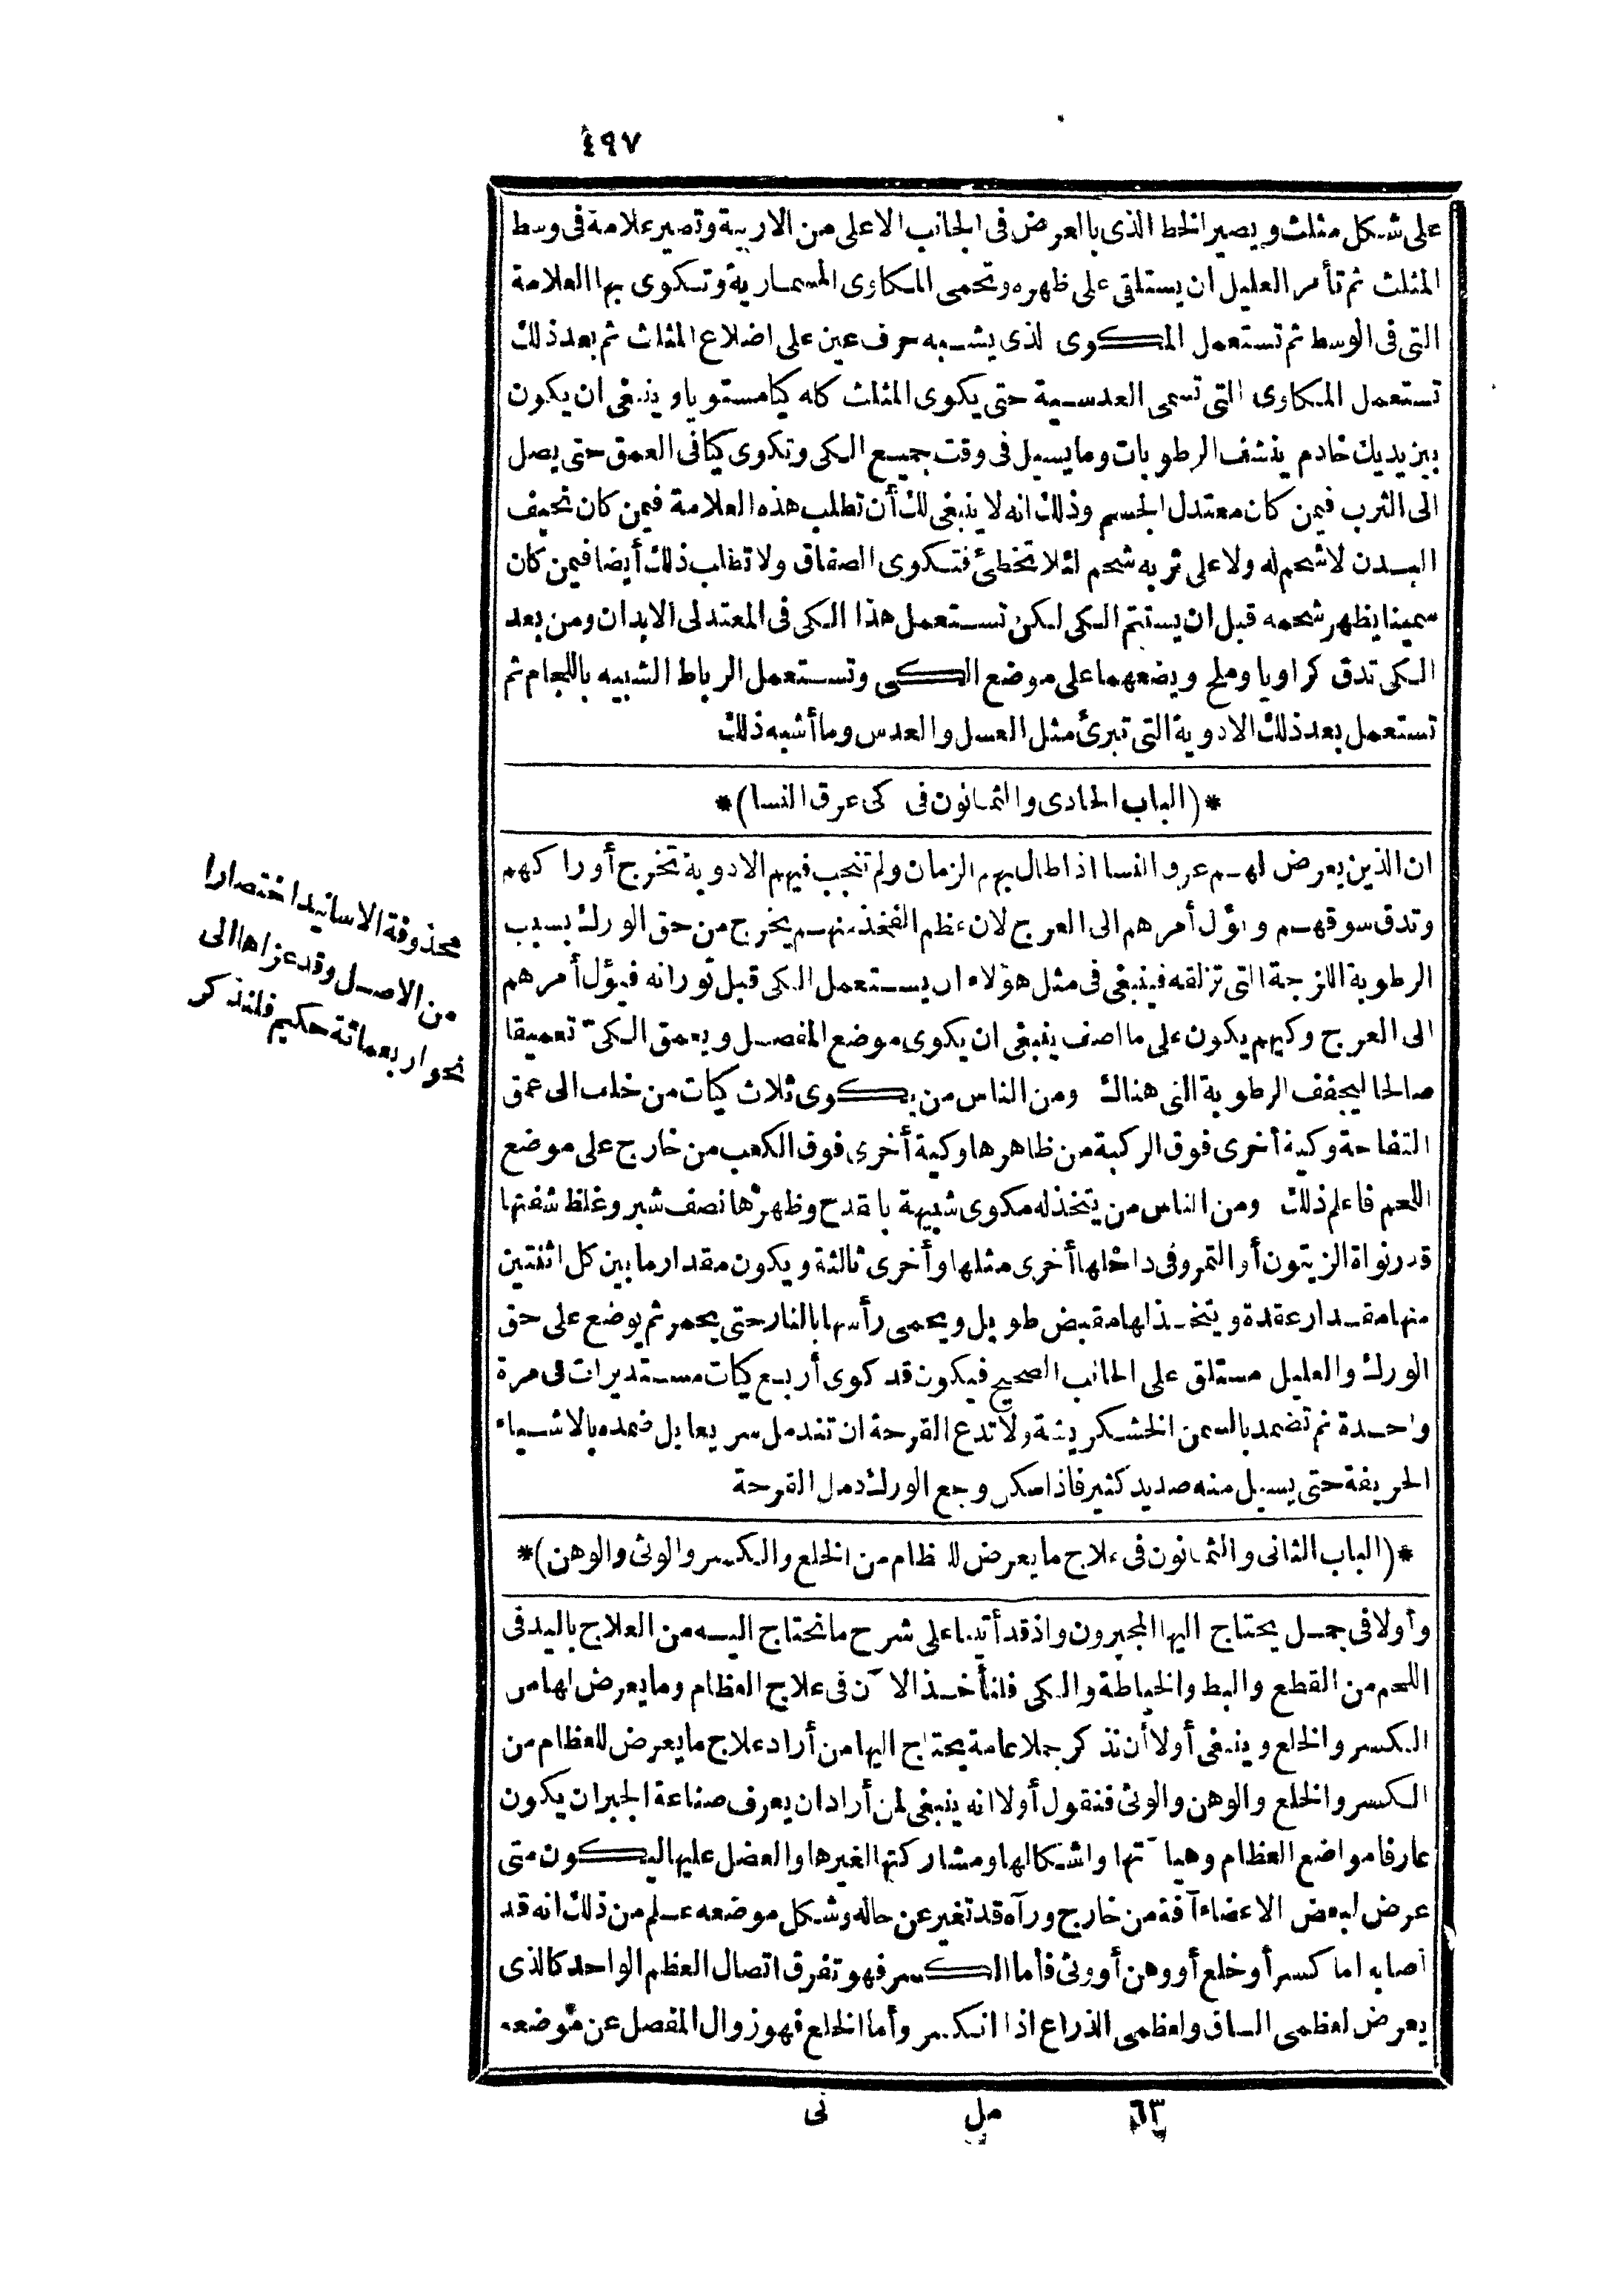 ٤٩٧
على شكل مثلث ويصير الخط الذى بالعرض فى الجانب الاعلى من الاربية وتصير علامة فى وسط
المثلث ثم تأمر العليل ان يستلقى على ظهره وتحمى المكاوى المسمارية وتكوى بها العلامة
التى فى الوسط ثم تستعمل المكوى لذى يشبه حرف عين على اضلاع المثلث ثم بعد ذلك
تستعمل المكاوى التى تسمى العدسية حتى يكوى المثلث كله كيا مستويا وينبغى ان يكون
بين يديك خادم ينشف الرطوبات وما يسيل فى وقت جميع الكى وتكوى كيا فى العمق حتى يصل
الى الثرب فيمن كان معتدل الجسم وذلك انه لا ينبغى لك أن تطلب هذه العلامة فيمن كان نحيف
البدن لا شحم له ولا على ثربه شحم لئلا تخطئ فتكوى الصفاق ولا تطلب ذلك أيضا فيمن كان
سمينا يظهر شحمه قبل ان يستتم الكى لكن تستعمل هذا الكى فى المعتدلى الابدان ومن بعد
الكى تدق كراويا وملح ويضعهما على موضع الكى وتستعمل الرباط الشبيه باللجام ثم
تستعمل بعد ذلك الادوية التى تبرئ مثل العسل والعدس وما أشبه ذلك
*(الباب الحادى والثمانون فى كى عرق النسا)*
ان الذين يعرض لهم عرو النسا اذا طال بهم الزمان ولم تنجب فيهم الادوية تخرج أوراكهم
وتدق سوقهم ويؤل أمرهم الى العرج لان عظم الفخذ منهم يخرج من حق الورك بسبب
الرطوبة اللزجة التى تزلقه فينبغى فى مثل هؤلاء ان يستعمل الكى قبل ثورانه فيؤل أمرهم
الى العرج وكيهم يكون على ما اصف ينبغى ان يكوى موضع المفصل ويعمق الكىّ تعميقا
صالحا ليجفف الرطوبة التى هناك ومن الناس من يكوى ثلاث كيات من خلف الى عمق
التفاحة وكية أخرى فوق الركبة من ظاهرها وكية أخرى فوق الكعب من خارج على موضع
اللحم فاعلم ذلك ومن الناس من يتخذ له مكوى شبيهة بالقدح وظهرها نصف شبر وغلظ شفتها
قدر نواة الزيتون أو التمر وفى داخلها أخرى مثلها وأخرى ثالثة ويكون مقدار ما بين كل اثنتين
منها مقدار عقدة ويتخذ لها مقبض طويل ويحمى رأسها بالنار حتى يحمر ثم يوضع على حق
الورك والعليل مستلق على الجانب الصحيح فيكون قد كوى أربع كيات مستديرات فى مرة
واحدة ثم تضمد بالسمن الخشكريشة ولا تدع القرحة ان تندمل سريعا بل ضمده بالاشياء
الحريفة حتى يسيل منه صديد كثير فاذا سكن وجع الورك دمل القرحة
*(الباب الثانى والثمانون فى علاج ما يعرض للعظام من الخلع والكسر والوثى والوهن)*
وأولا فى جمل يحتاج اليها المجبرون واذ قد أتينا على شرح ما نحتاج اليه من العلاج باليد فى
اللحم من القطع والبط والخياطة والكى فلنأخذ الآن فى علاج العظام وما يعرض لها من
الكسر والخلع وينبغى أولا أن نذكر جملا عامة يحتاج اليها من أراد علاج ما يعرض للعظام من
الكسر والخلع والوهن والوثى فنقول أولا انه ينبغى لمن أراد ان يعرف صناعة الجبر ان يكون
عارفا مواضع العظام وهيآتها واشكالها ومشاركتها لغيرها والعضل عليها ليكون متى
عرض لبعض الاعضاء آفة من خارج ورآه قد تغير عن حاله وشكل موضعه علم من ذلك انه قد
أصابه اما كسر أو خلع أو وهن أو وثى فأما الكسر فهو تفرق اتصال العظم الواحد كالذى
يعرض لعظمى الساق ولعظمى الذراع اذا انكسر وأما الخلع فهو زوال المفصل عن موضعه
٦٣ مل نى
محذوفة الاسانيد اختصارا
من الاصل وقد عزاها الى
نحو اربعمائة حكيم فلنذكر